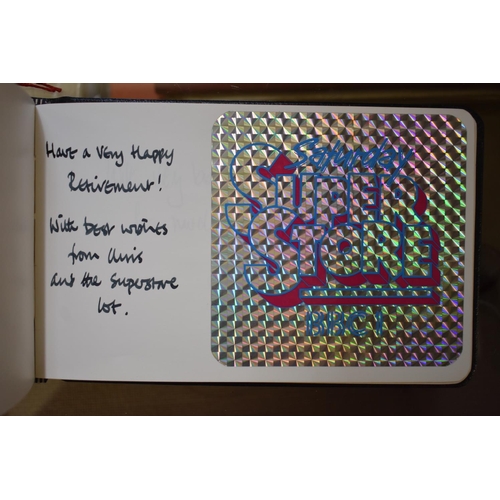 Have a Very Happy
Retirement!
With best wishes
from Chris
and the Superstore
lot.
Saturday
SUPER
STORE
BBC 1